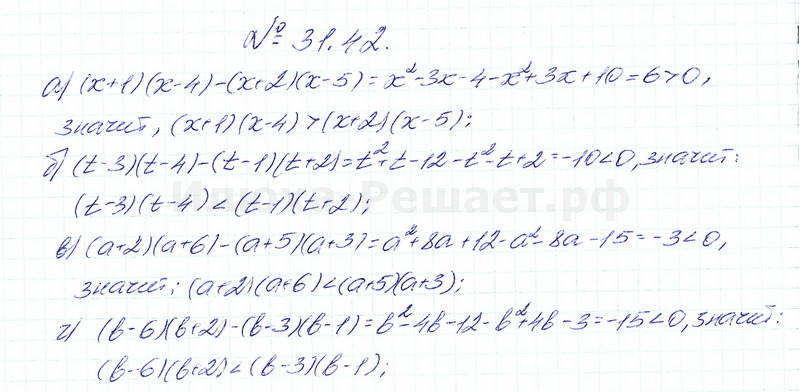 № 31.42.
а) (x+1)(x-4)-(x+2)(x-5)=x²-3x-4-x²+3x+10=6>0,
значит, (x+1)(x-4)>(x+2)(x-5);
б) (t-3)(t-4)-(t-1)(t+2)=t²+t-12-t²-t+2=-10<0, значит:
(t-3)(t-4)<(t-1)(t+2);
Илюха-Решает.рф
в) (a+2)(a+6)-(a+5)(a+3)=a²+8a+12-a²-8a-15=-3<0,
значит; (a+2)(a+6)<(a+5)(a+3);
г) (b-6)(b+2)-(b-3)(b-1)=b²-4b-12-b²+4b-3=-15<0, значит:
(b-6)(b+2)<(b-3)(b-1);